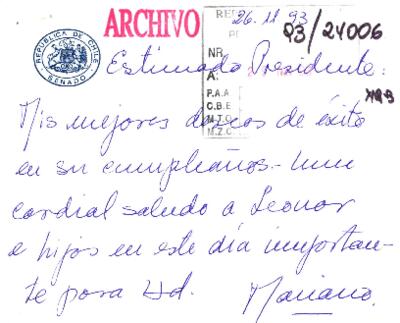 ARCHIVO
26.11.93
93/24006
REPUBLICA DE CHILE
SENADO
NR.
A:
P.A.A
C.B.E
M.T.O
M.Z.C
Estimado Presidente:
Mis mejores deseos de éxito
en su cumpleaños - Un
cordial saludo a Leonor
e hijos en este día importan-
te para Ud. Mariano.